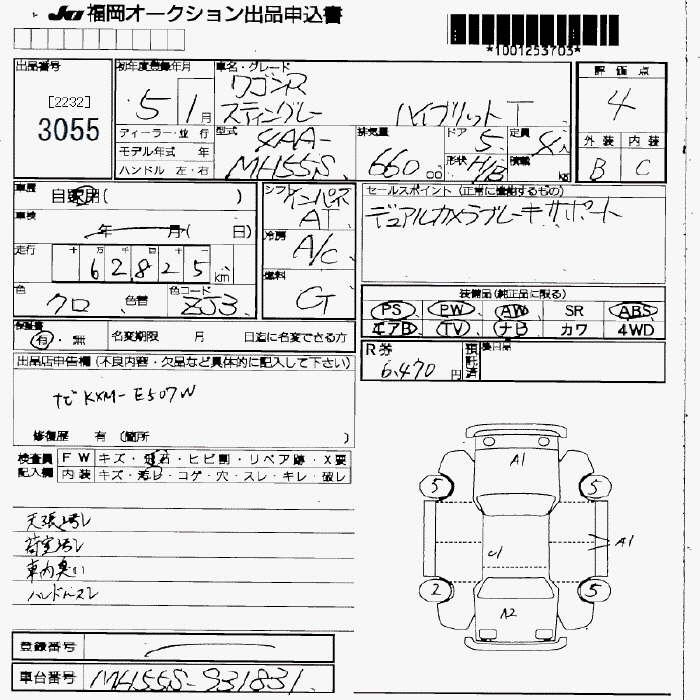 JU 福岡オークション出品申込書
*1001253703*
出品番号
[2232]
3055
初年度登録年月
5 1月
ディーラー・並行
モデル年式 年
ハンドル 左・右
車名・グレード
ワゴンR
スティングレー ハイブリットT
型式
4AA-
MH55S
排気量
660 cc
ドア
5
形状
H/B
定員
4人
積載
kg
評価点
4
外装 内装
B C
車歴
自家用( )
車検
年 月( 日)
走行
十 万 千 百 十
6 2 8 2 5 km
色
クロ
色替
色コード
ZJ3
シフト
インパネ
AT
冷房
A/C
燃料
G
セールスポイント (正常に機能するもの)
デュアルカメラブレーキサポート
装備品(純正品に限る)
PS PW AW SR ABS
エアB TV ナビ カワ 4WD
保証書
有・無
名変期限 月 日迄に名変できる方
R券
6,470 円
預託済
出品店申告欄 (不良内容・欠品など具体的に記入して下さい)
ナビ KXM-E507W
修復歴 有 (箇所 )
検査員
記入欄
FW キズ・飛石・ヒビ割・リペア跡・X要
内装 キズ・汚レ・コゲ・穴・スレ・キレ・破レ
天張汚レ
荷室汚レ
車内臭い
ハンドルスレ
A1
5 5
U1
A1
2 5
A2
登録番号
車台番号
MH55S-931831